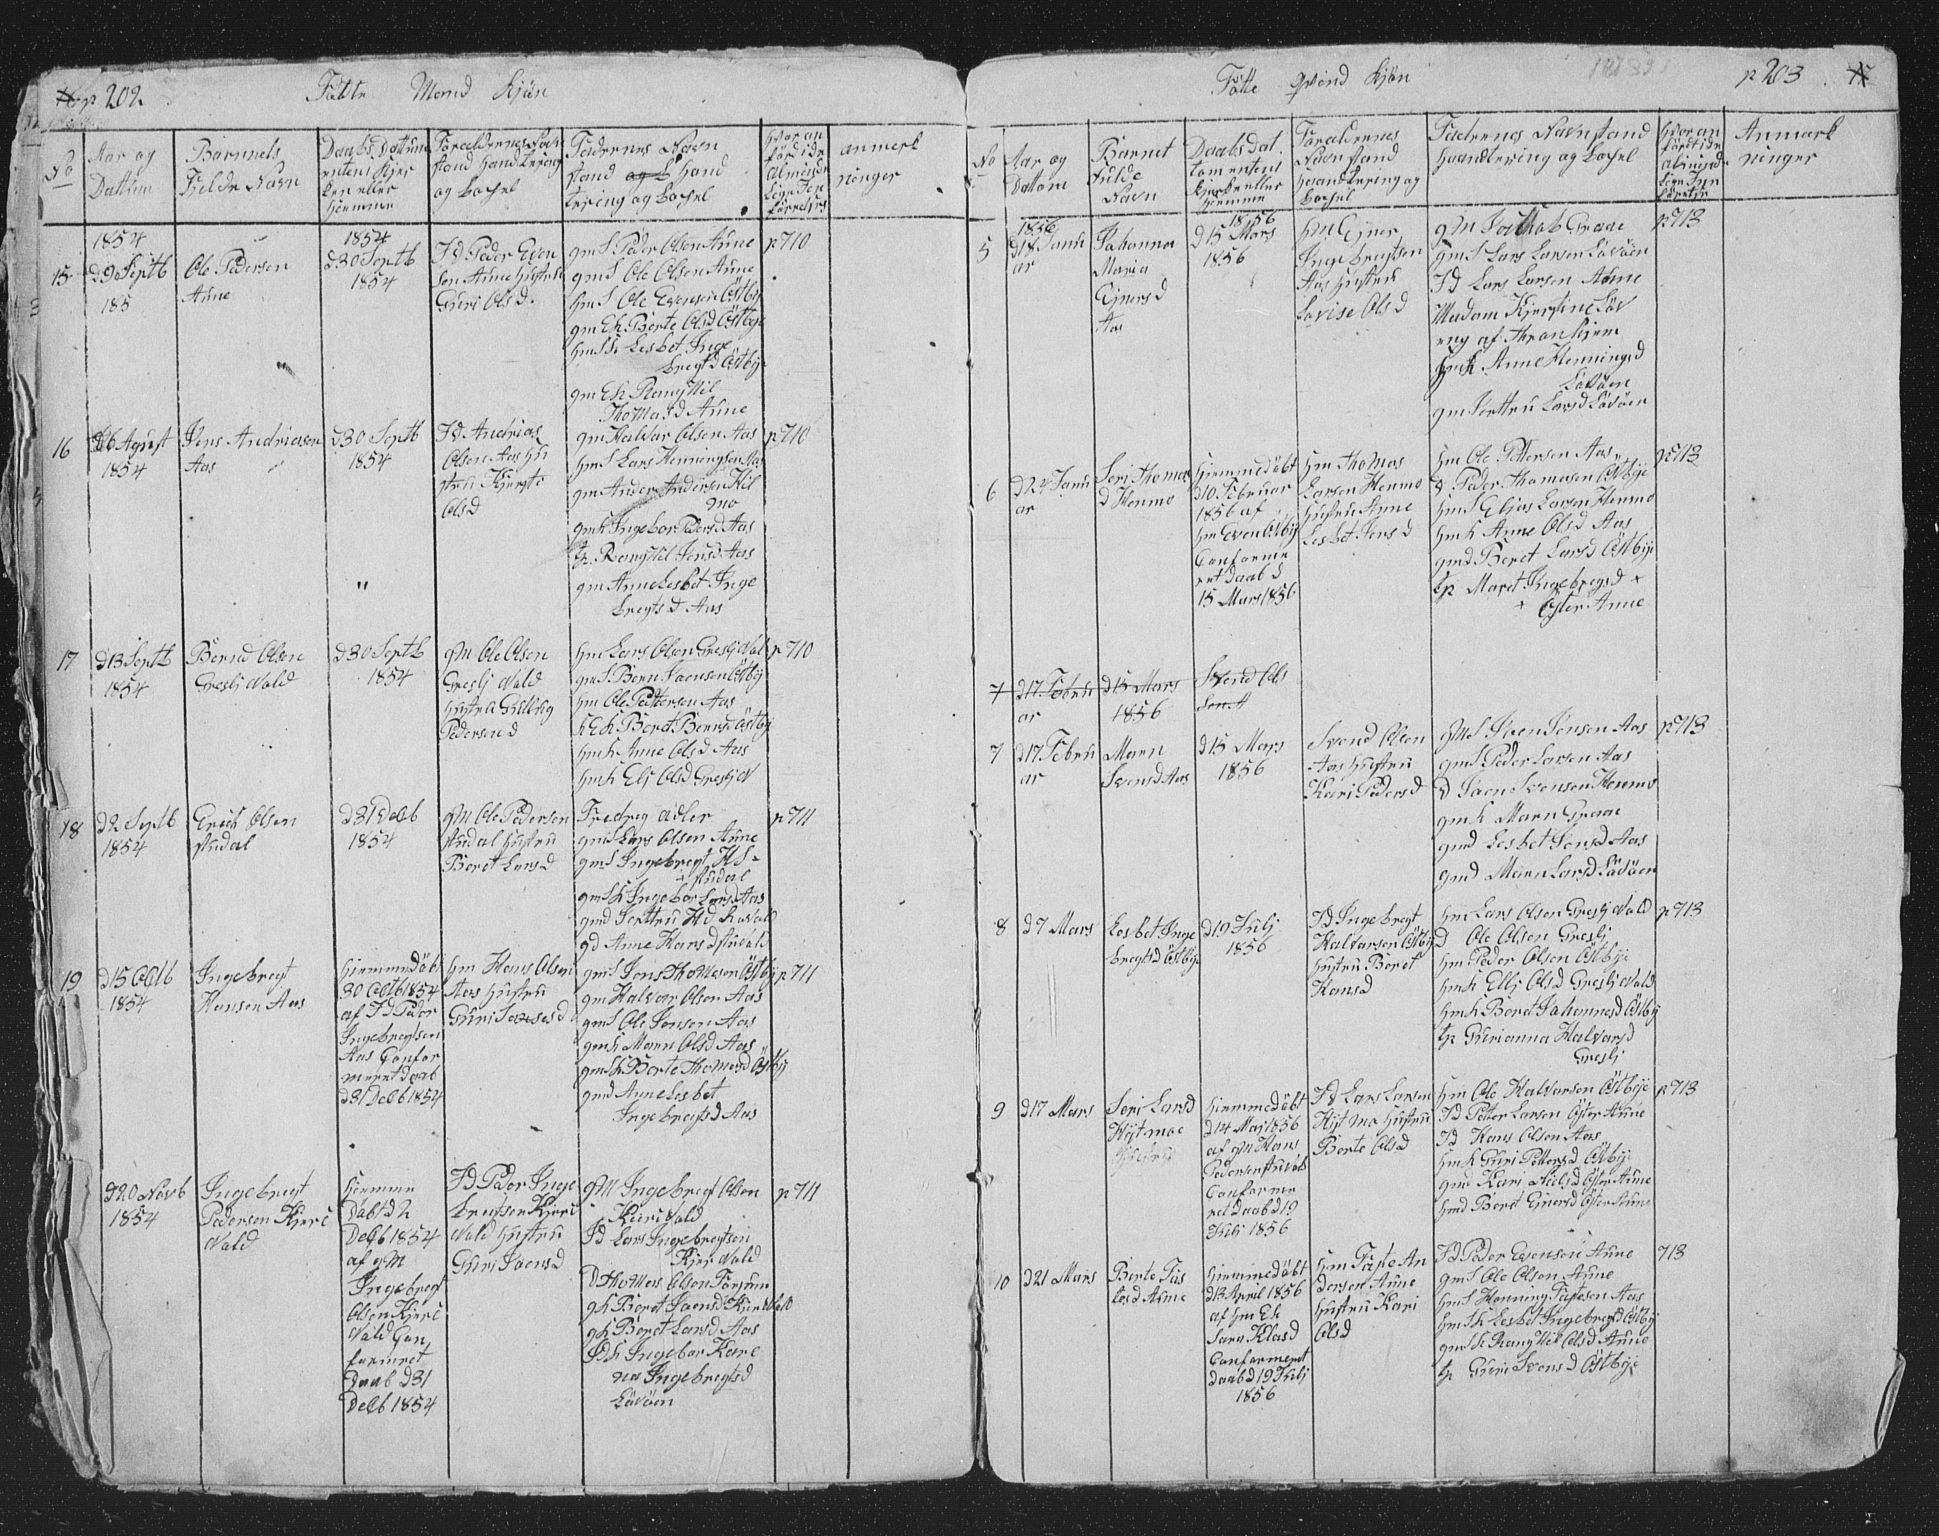 p 202.
Födte Mand Kjön
No
Aar og
Dattum
Barnets
Fulde Navn
Daabs Dattum
hiemme
Foreldrenes Nav
stand Handtering
og Bopel
Fadernes Navn
stand og b Hand
tering og Bopel
anmerk
ninger
15
1854
d 9 Septb
185
Ole Pedersen
Aune
1854
d 30 Septb
1854
I d Peder Even
sen Aune Hustru
Guri Olsd.
gm S Peder Olsen Aune
gm S Ole Olsen Aune
hm S Ole Evensen Östby
gm Ek Berte Olsd Östbye
hm S k Lesbet Inge
bregtsd Östbye
gm Ek Rangttil
Thomasd Aune
p 710
16
d 6 Agust
1854
Jens Andriasen
Aas
d 30 Septb
1854
I d Andrias
Olsen Aas Hu
stru Kjersti
Olsd
gm Halvar Olsen Aas
hm S Lars Henningsen Aas
gm Ander Andersen Kil
mo
gm k Ingebor Pedersd Aas
tp. Rangttil Jensd Aas
gm Anne Lesbet Inge
bregts d Aas
p 710
"
17
d 13 Septb
1854
Bernd Olsen
Gresli Vald
d 30 Septb
1854
gM Ole Olsen
Gresli Vald
Hustru Gollaug
Pedersen d
hm Lars Olsen Gresli Val
gm S Bern Jaensen Östby
hm Ole Pettersen Aas
k Ek Beret Berns d Östby
hm k Anne Olsd Aas
hm k Eli Olsd Gresli V
p 710
18
d 2 Septb
1854
Erich Olsen
Studal
d 31 Decb
1854
gM Ole Pedersen
studal Hustru
Beret Larsd
Fredreg adler
gm S Lars Olsen Aune
gm S Ingebregt H S-
studal
gm S k Ingebor Larsd Aas
gm d
gd Anne Hans d Studal
p 711
19
d 15 Octb
1854
Ingebregt
Hansen Aas
hiemmedöbt
30 Octb 1854
af I d Peder
Ingebregtsen
Aas Confar
meret daab
d 31 Decb 1854
hm Hans Olsen
Aas Hustru
Guri
gm S Jens Thomesen Östby
gm Halvar Olsen Aas
gm S Ole Jonsen Aas
gm k Marn Olsd Aas
gm S k Berte Thomesd Östby
gm d Anne Lesbet
Ingebregtsd Aas
p 711
d 20 Novb
1854
Ingebregt
Pedersen Kjeri
Vald
hiemme
Döbt d 2
Decb 1854
af gM
Ingebregt
Olsen Kjeri
Vald Con
farmret
Daab d 31
Decb 1854
I d Peder Inge
bregtsen Kjeri
Vald Hustru
Guri Jaensd
gM Ingebregt Olsen
Kieri Vald
I d Lars Ingebregtsen
Kjer Vald
D Thomes Olsen
gk Beret Jaensd Kieri Vald
gk Beret Larsd Aas
Ingebar Kare
na Ingebregtsd
Lövöen
p 711
Födte Qvind Kjön
p 203
No
Aar og
Dattom
Barnet
Fulde
Navn
Daabs dat
Kierken eller
hiemme
Foreldrenes
Navn stand
Haandtering og
Bopel
Fadrenes Navn stand
Haandtering og Bopel
Anmerk
ninger
5
1856
d 18 Janu
ar
Johanna
Maria
Ejners d
Aas
1856
d 15 Mars
1856
hm Ejner
Ingebregtsen
Aas Hustru
Lovise Ols d
gM Jachab Graae
gm S Lars Larsen Lövöen
I d Lars Larsen Aune
Madam Kjerstine Löv
eng af Thronhiem
hm k Anne Hennings d
Lövöen
gm Larsd Lövöen
p 713
6
d 24 Janu
ar
Seri Thomas
d Henmo
hiemmedöbt
d 10 Februar
1856 af
hm Even Östby
Confarme
ret Daab d
15 Mars 1856
hm Thomas
Larsen Henmo
Hustru Anne
Lesbet Jens d
hm Ole Pettersen Aas
d Peder Thomasen Östbye
hm S Elias Larsen Henmo
hm k Anne Ols d Aas
gm d Beret Lars d Östbye
tp Maret Ingebregsd +
+ Öster Aune
p 713
7
d 17 Febru
ar
d 15 Mars
1856
Svend Ols
sen A
7
d 17 Febru
ar
Marn
Svensd Aas
d 15 Mars
1856
Svend Olsen
Aas Hustru
Kari Peders d
gM S Iven Jensen Aas
gm S Peder Larsen Aas
D Jaen Svensen Henmo
gm k Marn Graae
gm d Lesbet Jensd Aas
gm d Marn Larsd Lövöen
p 713
8
d 7 Mars
Lesbet Inge
bregtsd Östbye
d 19 Julj
1856
I d Ingebregt
Halvarsen Östby
Hustru Beret
Hansd
hm Lars Olsen Gresli Vald
d Ole Olsen Gresli
hm Peder Olsen Östbye
hm k Elli Olsd Gresli Vald
hm k Beret Johannesd Östby
tp Gurianna Halvarsd
Gresli
p 713
9
d 17 Mars
Seri Larsd
Hytmoe
hiemmedöbt
d 14 Maj 1856
af gM Hans
Pedersen studal
Confarme
ret daab d 19
Julj 1856
I d Lars Larsen
Hytmo Hustru
Berte Olsd
hm Ole Halvarsen Östbye
I d Petter Larsen Öster Aune
I d Hans Olsen Aas
hm k Guri Pettersd Östbye
gm d Kari Nielsd Öster Aune
hm d Beret Einersd Öster Aune
p 713
10
d 21 Mars
Berte Fas
tesd Aune
hiemmedöbt
d 13 April 1856
af hm Ek
Sara Klasd
Confarmeret
daab d 19 Julj
1856
hm Faste An
dersen Aune
Hustru Kari
Olsd
I d Peder Evensen Aune
gm S Ole Olsen Aune
hm S Henning Fastesen Aas
hm S k Lesbet Ingebregtsd Östby
gm S k Rangttil Olsd Aune
tp Guri Svens d Östbye
713